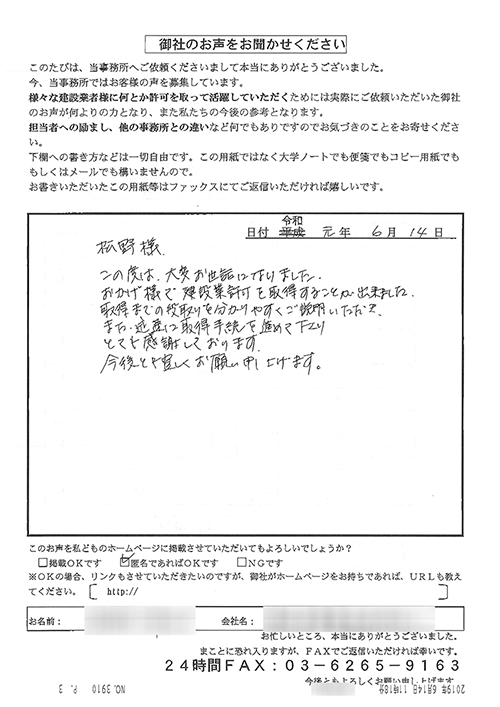 御社のお声をお聞かせください
このたびは、当事務所へご依頼くださいまして本当にありがとうございました。
今、当事務所ではお客様の声を募集しています。
様々な建設業者様に何とか許可を取って活躍していただくためには実際にご依頼いただいた御社
のお声が何よりの力となり、また私たちの今後の参考となります。
担当者への励まし、他の事務所との違いなど何でもありですのでお気づきのことをお寄せくださ
い。
下欄への書き方などは一切自由です。この用紙ではなく大学ノートでも便箋でもコピー用紙でも
もしくはメールでも構いませんので。
お書きいただいたこの用紙等はファックスにてご返信いただければ嬉しいです。
令和
日付 平成 元年 6月 14日
松野様
この度は、大変お世話になりました。
おかげ様で建設業許可を取得することが出来ました。
取得までの段取りを分かりやすくご説明いただき、
また、迅速に取得手続を進めて下さり
とても感謝しております。
今後とも宜しくお願い申し上げます。
このお声を私どものホームページに掲載させていただいてもよろしいでしょうか?
□掲載OKです ☑匿名であればOKです □NGです
※OKの場合、リンクもさせていただきたいのですが、御社がホームページをお持ちであれば、URLも教え
てください。 [ http:// ]
お名前: 会社名:
お忙しいところ、本当にありがとうございました。
まことに恐れ入りますが、FAXでご返信いただければ幸いです。
24時間FAX:03-6265-9163
今後ともよろしくお願い申し上げます。
2019年 6月14日 11時18分 NO. 3910 P. 3